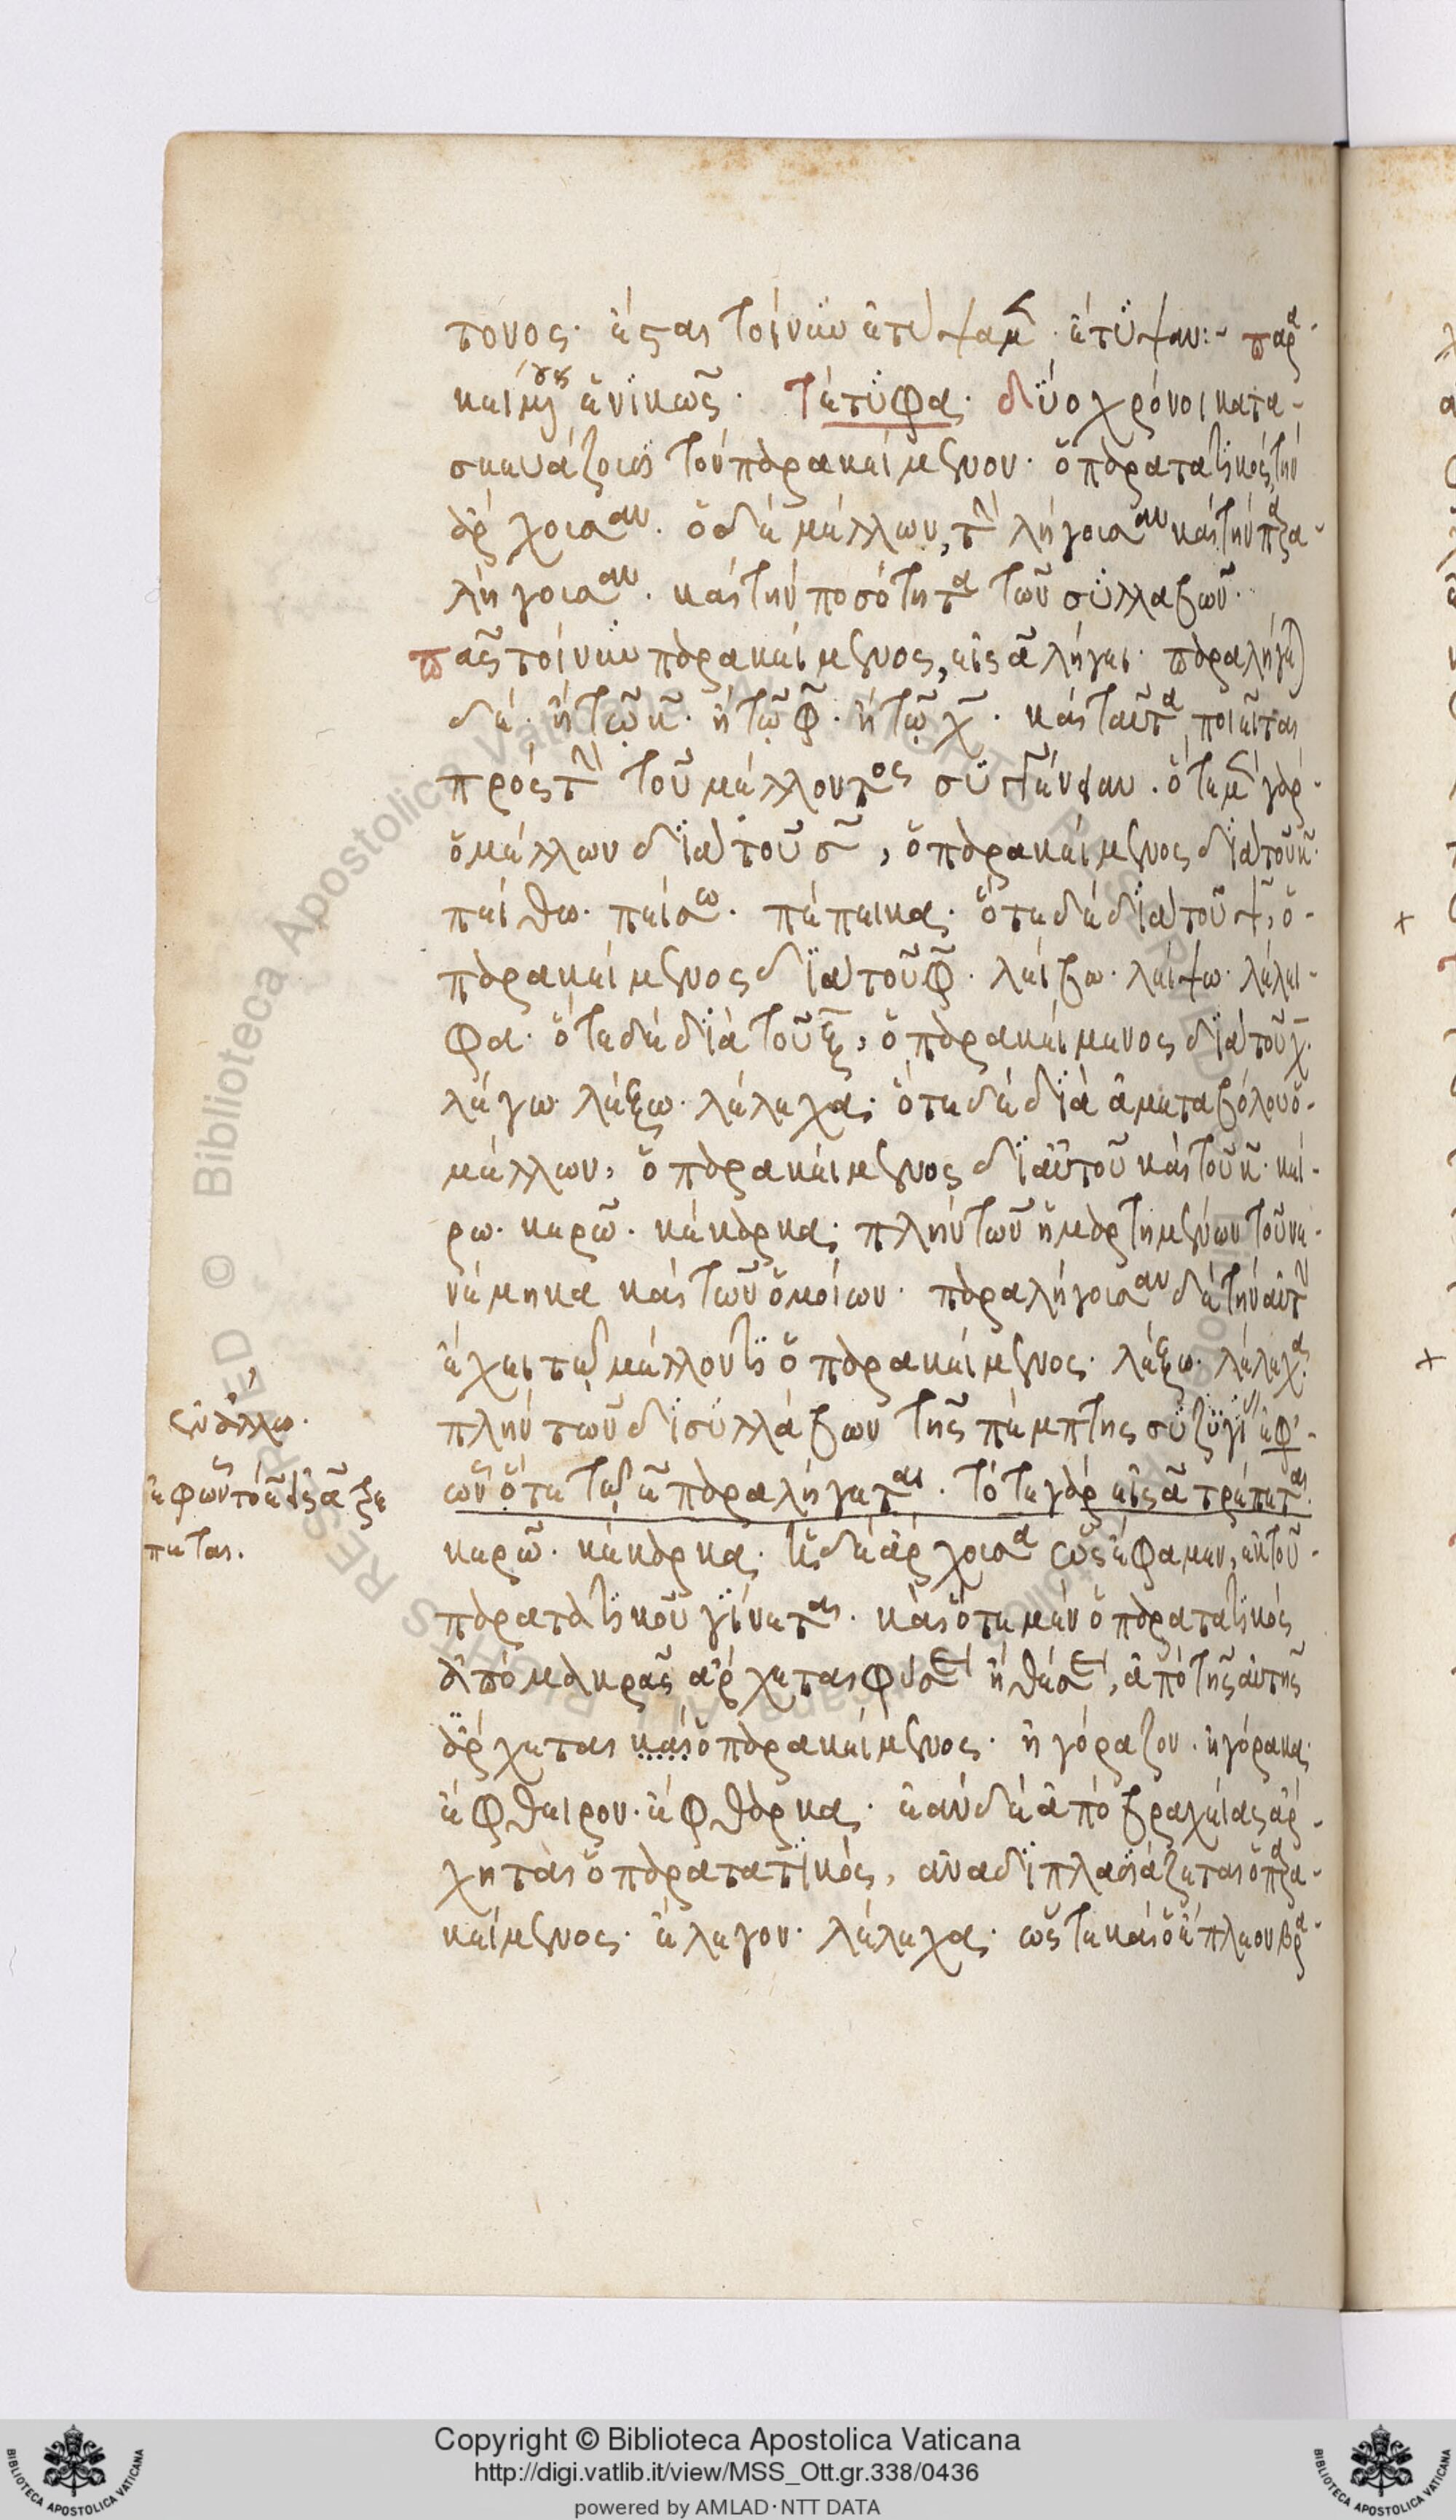 τονος· ἔσται τοίνυν ἐτύψαμεν· ἔτυψαν:- παρα-
κείμενος ἑνικῶς· τέτυφα· δύο χρόνοι κατα-
σκευάζουσι τὸν παρακείμενον· ὁ παρατατικὸς, τὴν
ἄρχουσαν. ὁ δὲ μέλλων, τὴν λήγουσαν καὶ τὴν παρα-
λήγουσαν. καὶ τὴν ποσότητα τῶν συλλαβῶν·
πᾶς τοίνυν παρακείμενος, εἰς α λήγει· παραλήγει
δὲ· ἢ τῷ κ· ἢ τῷ φ· ἢ τῷ χ· καὶ ταῦτα ποιεῖται
πρὸς τὴν τοῦ μέλλοντος συγγένειαν. ὅτε μὲν γὰρ
ὁ μέλλων διὰ τοῦ σ, ὁ παρακείμενος διὰ τοῦ κ·
πείθω· πείσω· πέπεικα· ὅτε δὲ διὰ τοῦ ψ, ὁ
παρακείμενος διὰ τοῦ φ· λείβω· λείψω· λέλει-
φα· ὅτε δὲ διὰ τοῦ ξ, ὁ παρακείμενος διὰ τοῦ χ·
λέγω· λέξω· λέλεχα· ὅτε δὲ διὰ ἀμεταβόλου ὁ
μέλλων, ὁ παρακείμενος δι αὐτοῦ καὶ τοῦ κ· κεί-
ρω· κερῶ· κέκαρκα· πλὴν τῶν ἡμαρτημένων τοῦ νε-
νέμηκα καὶ τῶν ὁμοίων· παραλήγουσαν δὲ τὴν αὐτὴν
ἔχει τῷ μέλλοντι ὁ παρακείμενος· λέξω· λέλεχα·
πλὴν τῶν δισυλλάβων τῆς πέμπτης συζυγίας ἐφ'
ὧν ὅτε τῷ ε παραλήγεται· τότε γὰρ εἰς α τρέπεται·
κερῶ· κέκαρκα· ἡ δὲ ἄρχουσα ὡς ἔφαμεν, ἐκ τοῦ
παρατατικοῦ γίνεται· καὶ ὅτε μὲν ὁ παρατατικὸς
ἀπὸ μακρᾶς ἄρχεται φύσει ἢ θέσει, ἀπὸ τῆς αὐτῆς
ἄρχεται καὶ ὁ παρακείμενος· ἠγόραζον· ἠγόρακα·
ἔφθειρον· ἔφθαρκα· ἐὰν δὲ ἀπὸ βραχείας ἄρ-
χηται ὁ παρατατικὸς, ἀναδιπλασιάζεται ὁ παρα-
κείμενος· ἔλεγον· λέλεχα· ὥστε καὶ ὁ ἔπλεον βρα-
ἐφ ὧν τὸ ε εἰς α τρέ
πεται.